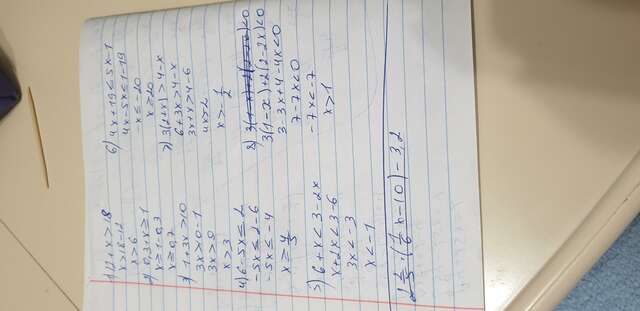 1) 12+x>18
x>18-12
x>6
2) 0,3+x≥1
x≥1-0,3
x≥0,7
3) 1+3x>10
3x>0-1
3x>0
x>3
4) 6-5x≤2
-5x≤2-6
-5x≤-4
x≥4/5
5) 6+x<3-2x
x+2x<3-6
3x<-3
x<-1
6) 4x+19≤5x-1
4x-5x≤-1-19
x≤-20
x≥20
7) 3(1+x)>4-x
6+3x>4-x
3x+x>4-6
4x>2
x>-1/2
8)
3(1-x)+2(2-2x)<0
3-3x+4-4x<0
7-7x<0
-7x<-7
x>1